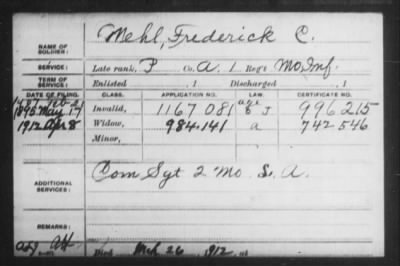 Mehl, Frederick C.
NAME OF SOLDIER:
SERVICE: Late rank, P Co. A, 1 Reg't Mo. Inf.
TERM OF SERVICE: Enlisted , 1 Discharged , 1
DATE OF FILING. CLASS. APPLICATION NO. LAW. CERTIFICATE NO.
Feb 21 age
1895 May 17 Invalid, 1167 081 & J 996215
1912 Apr 8 Widow, 984.141 a 742 546
Minor,
ADDITIONAL SERVICES: Com Sgt 2 Mo. S. A.
REMARKS:
Died Mch 26, 1912, at